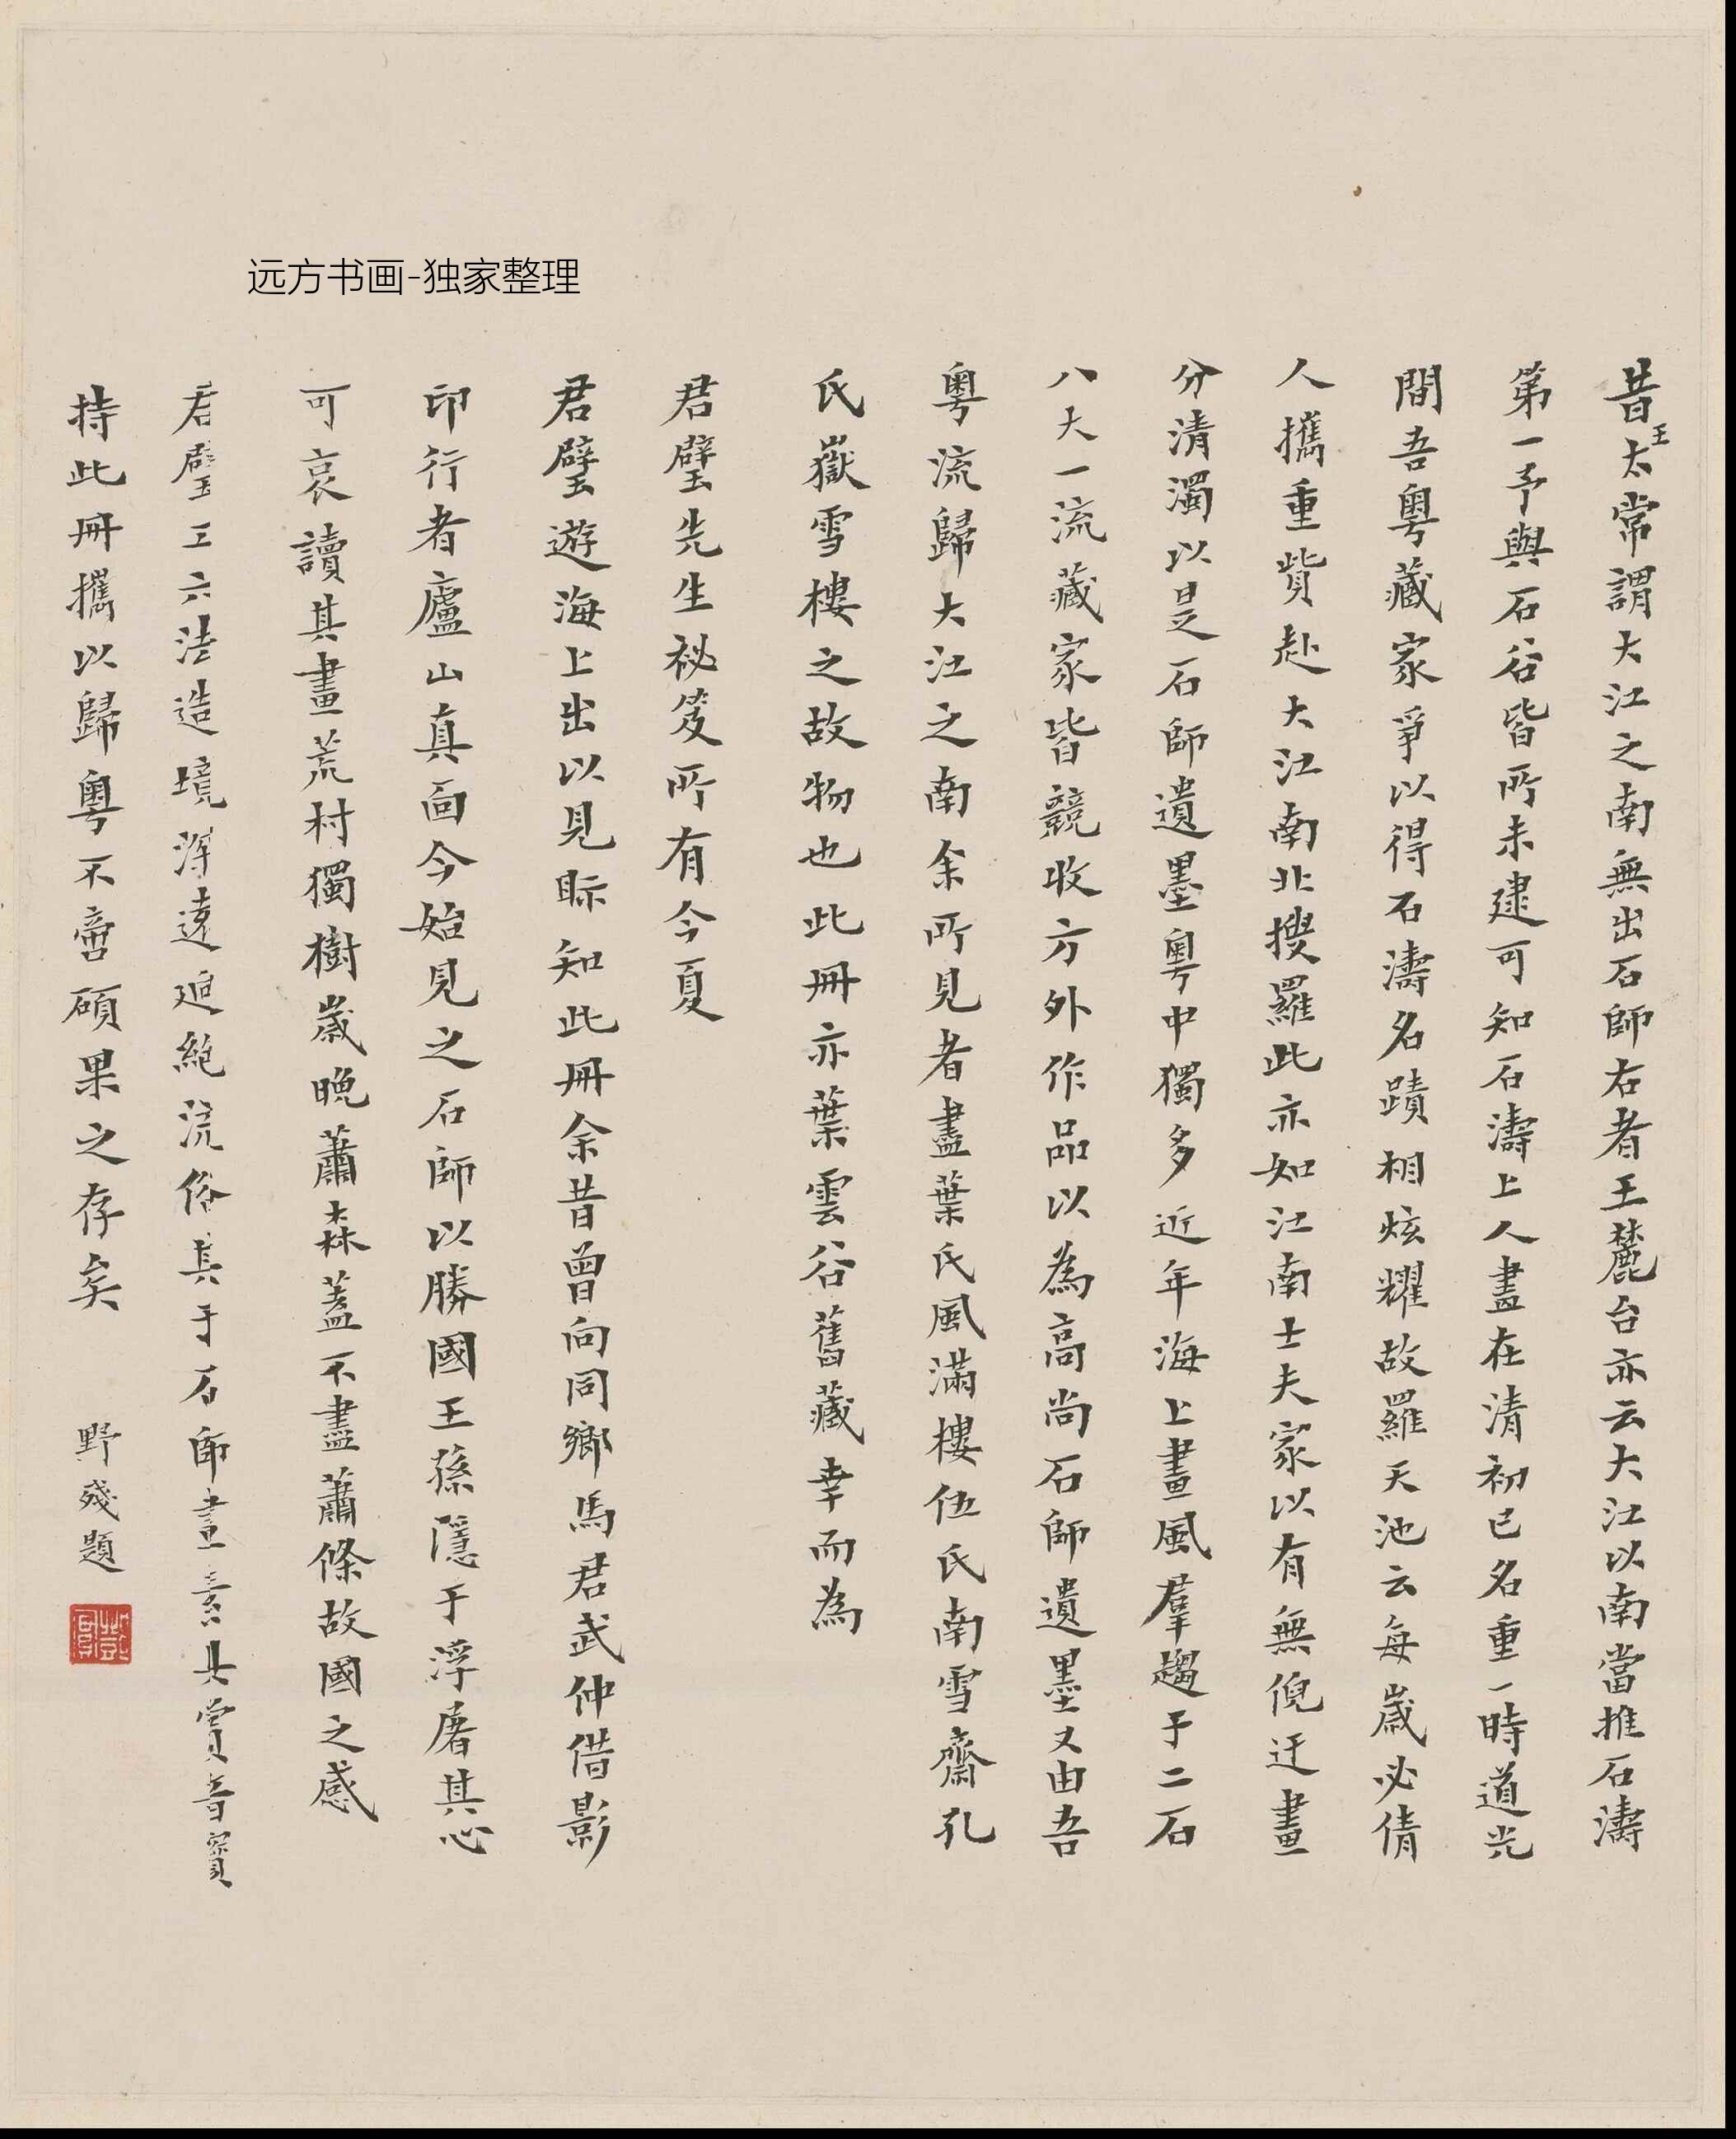 远方书画-独家整理
昔王太常謂大江之南無出石師右者王麓台亦云大江以南當推石濤
第一予與石谷皆所未逮可知石濤上人畫在清初已名重一時道光
間吾粵藏家爭以得石濤名蹟相炫耀故羅天池云每歲必倩
人攜重貲赴大江南北搜羅此亦如江南士夫家以有無倪迂畫
分清濁以是石師遺墨粵中獨多近年海上畫風羣趨于二石
八大一流藏家皆競收方外作品以為高尚石師遺墨又由吾
粵流歸大江之南余所見者盡葉氏風滿樓伍氏南雪齋孔
氏嶽雪樓之故物也此冊亦葉雲谷舊藏幸而為
君璧先生祕笈所有今夏
君璧遊海上出以見眎知此冊余昔曾向同鄉馬君武仲借影
印行者廬山真面今始見之石師以勝國王孫隱于浮屠其心
可哀讀其畫荒村獨樹歲晚蕭森蓋不盡蕭條故國之感
君璧工六法造境渾遠迥絕流俗其于石師畫素具賞音寶
持此冊攜以歸粵不啻碩果之存矣
野殘題